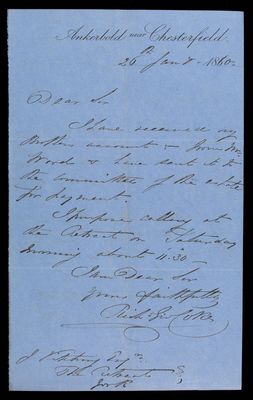 Ankerbold near Chesterfield.
26th Jany 1860.
Dear Sir
I have received my
Brothers account & from Mr
Wood & have sent it to
the committee of the estate
for payment.
I purpose calling at
the Retreat on Saturday
morning about 11.30
I am Dear Sir
yours faithfully
Esqre
The Retreat
York